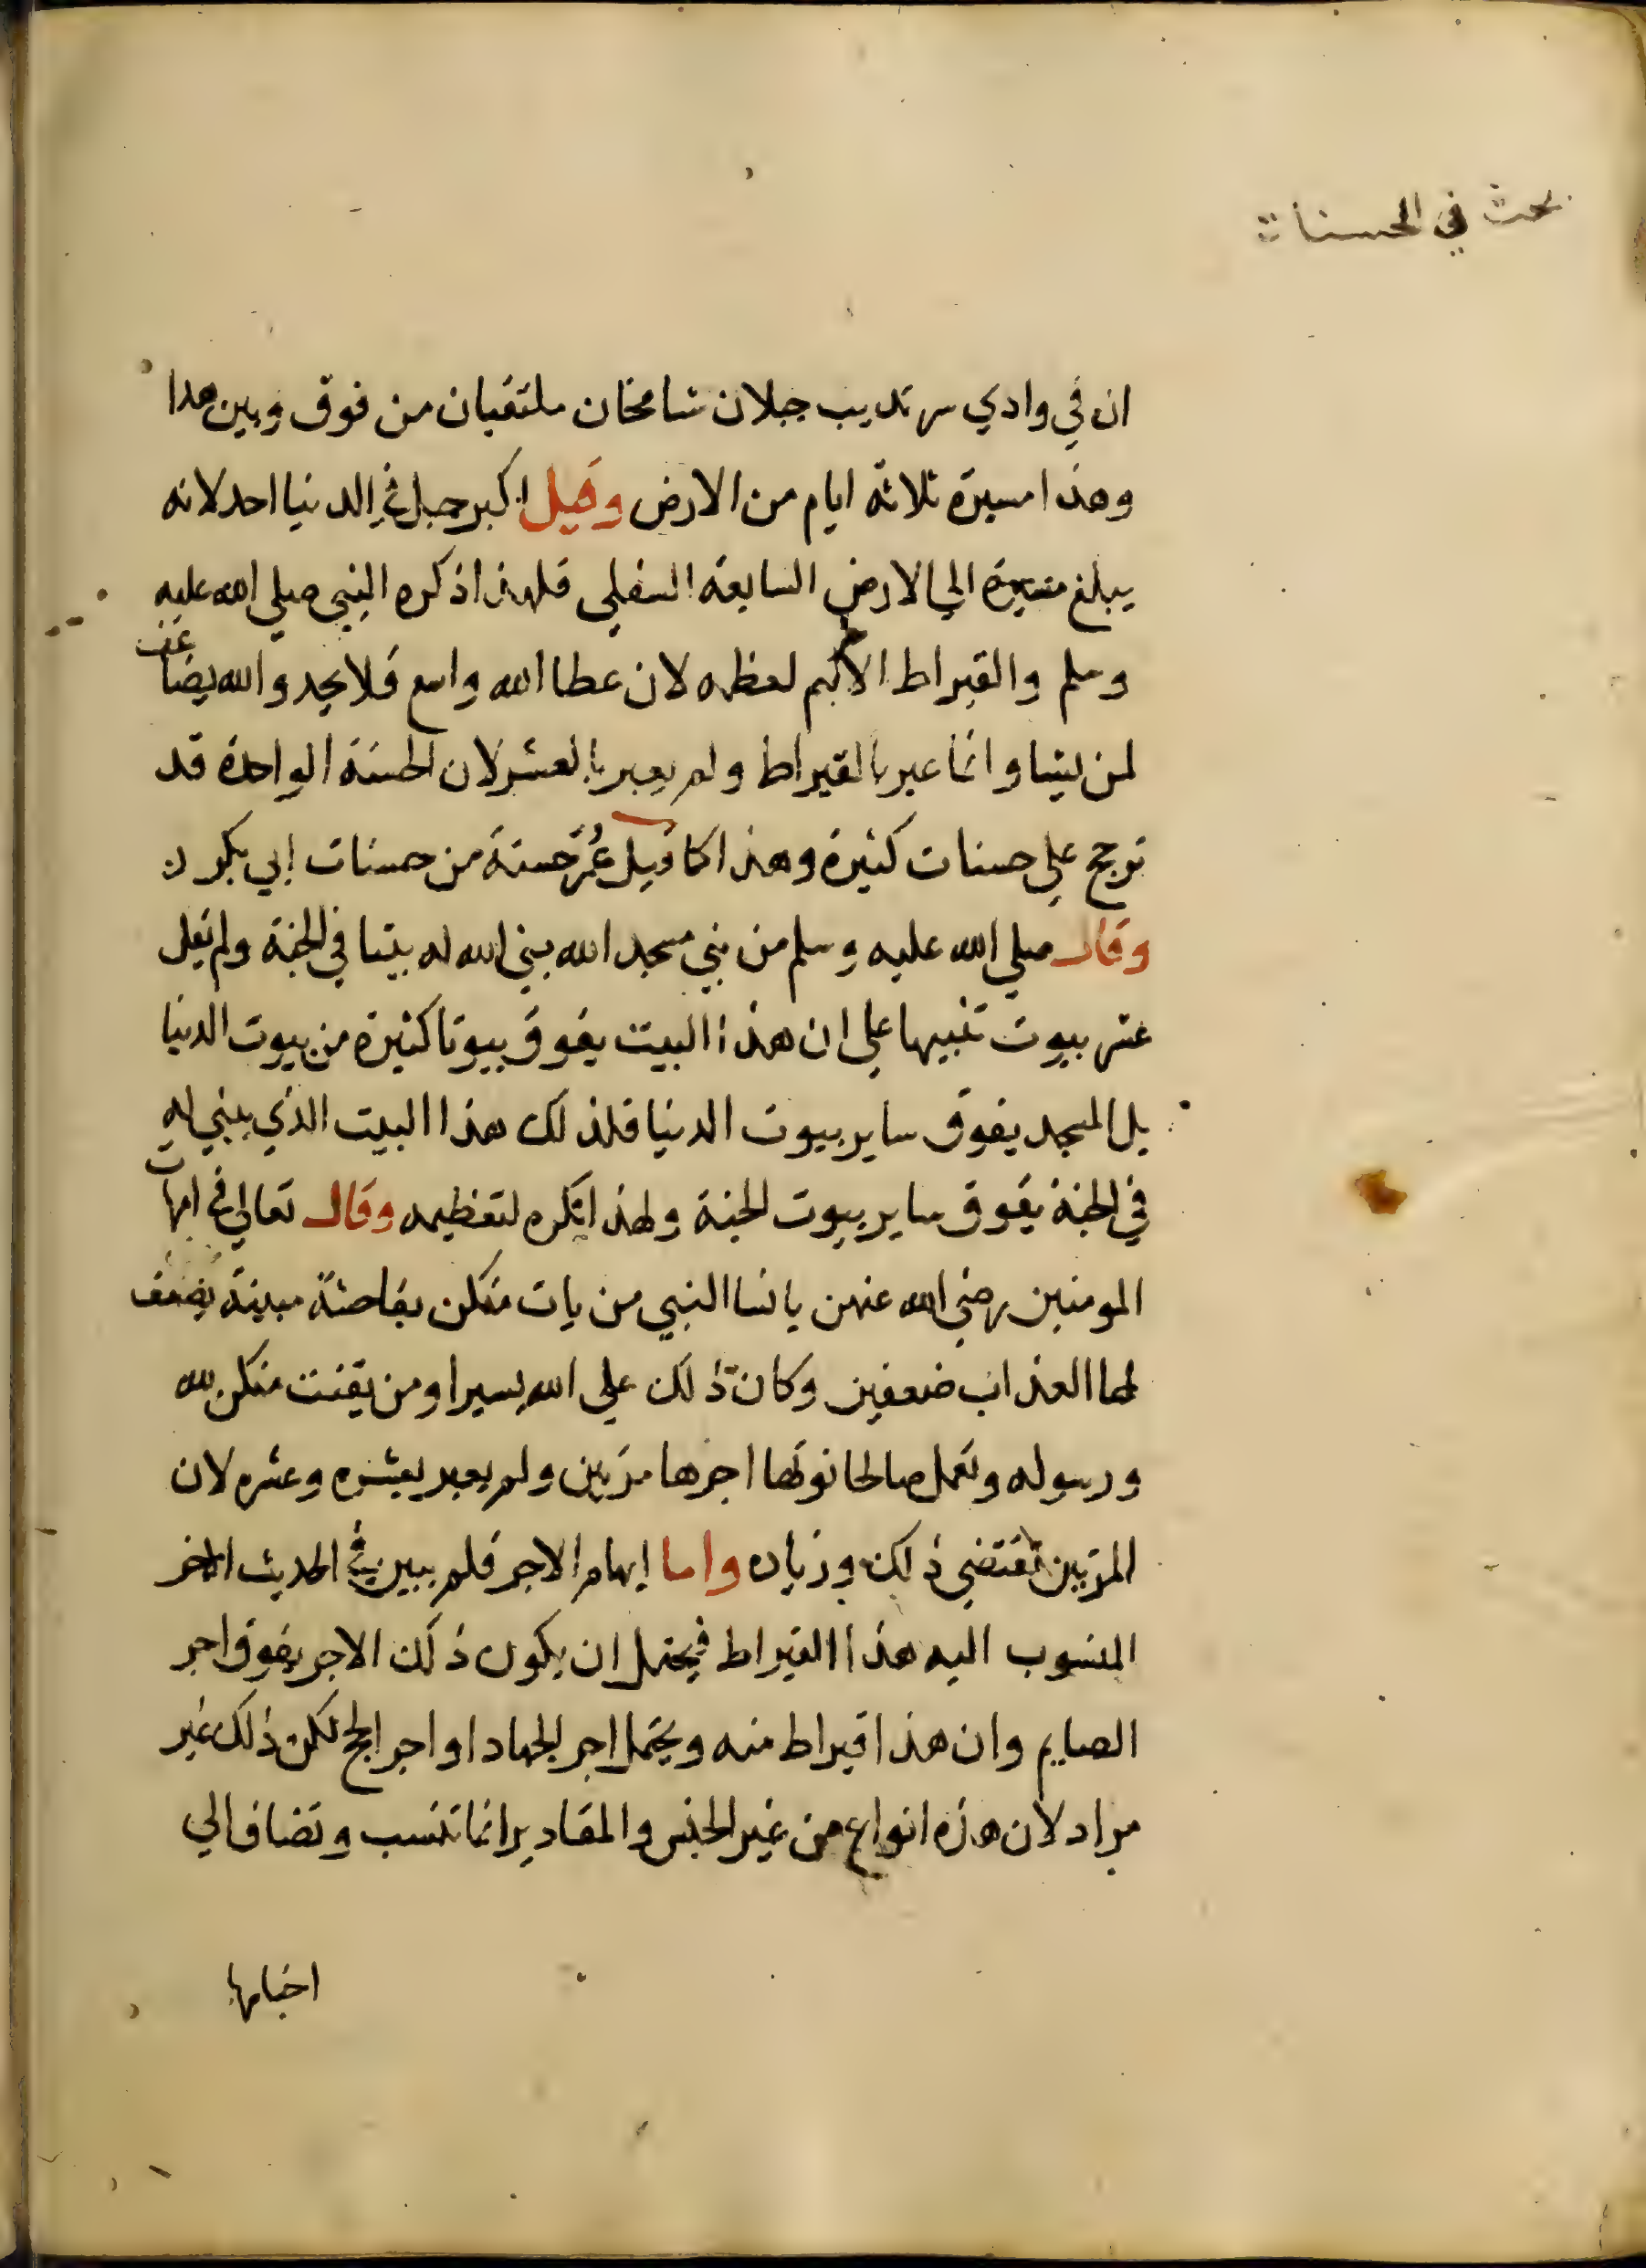 بحث في الحسنات
ان في وادي سرنديب جبلان شامخان ملتقيان من فوق وبين هدا
وهذا مسيرة ثلاثة ايام من الارض وقيل اكبر جبل في الدنيا احد لانه
يبلغ مسيرة الي الارض السابعة السفلي فلهذا ذكره النبي صلي الله عليه
وسلم والقيراط الابهم لعظمه لان عطا الله واسع فلا يحد والله يضاعف
لمن يشا وانما عبر بالقيراط ولم يعبر بالعشر لان الحسنة الواحدة قد
ترجح علي حسنات كثيرة وهذا كما قيل عُمَر حسنة من حسنات ابي بكر
وقال صلي الله عليه وسلم من بني مسجد الله بني الله له بيتا في الجنة ولم يقل
عشر بيوت تنبيها علي ان هذا البيت يفوق بيوتا كثيرة من بيوت الدنيا
بل المسجد يفوق ساير بيوت الدنيا فلذلك هذا البيت الذي يبني له
في الجنة يفوق ساير بيوت الجنة ولهذا نكره لتعظيمه وقال تعالي في امهات
المومنين رضي الله عنهن يا نسا النبي من يات منكن بفاحشة مبينة يضعف
لها العذاب ضعفين وكان ذلك علي الله يسيرا ومن يقنت منكن لله
ورسوله وتعمل صالحا نوتها اجرها مرتين ولم يعبر بعشره وعشره لان
المرتين تقتضي ذلك وزياده واما ابهام الاجر فلم يبين في الحديث الاخر
المنسوب اليه هذا القيراط فيحتمل ان يكون ذلك الاجر يفوق اجر
الصايم وان هذا قيراط منه ويحتمل اجر الجهاد او اجر الحج لكن ذلك غير
مراد لان هذه انواع من غير الجنس والمقادير انما تنسب وتضاف الي
اخبارها